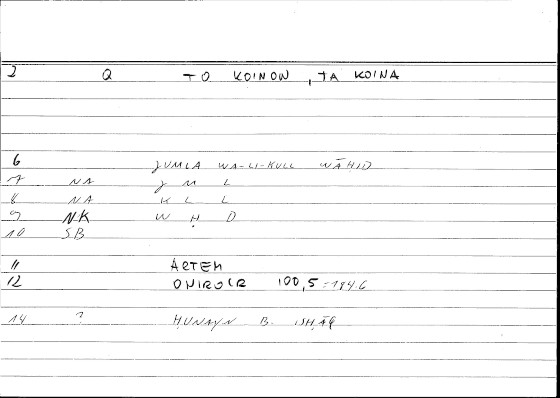 2 Q TO KOINON, TA KOINA
6 JUMLA WA-LI-KULL WĀḤID
7 NA J M L
8 NA K L L
9 NK W Ḥ D
10 SB
11 ARTEM
12 ONIROCR 100,5 = 194.6
14 ? ḤUNAYN B. ISḤĀQ